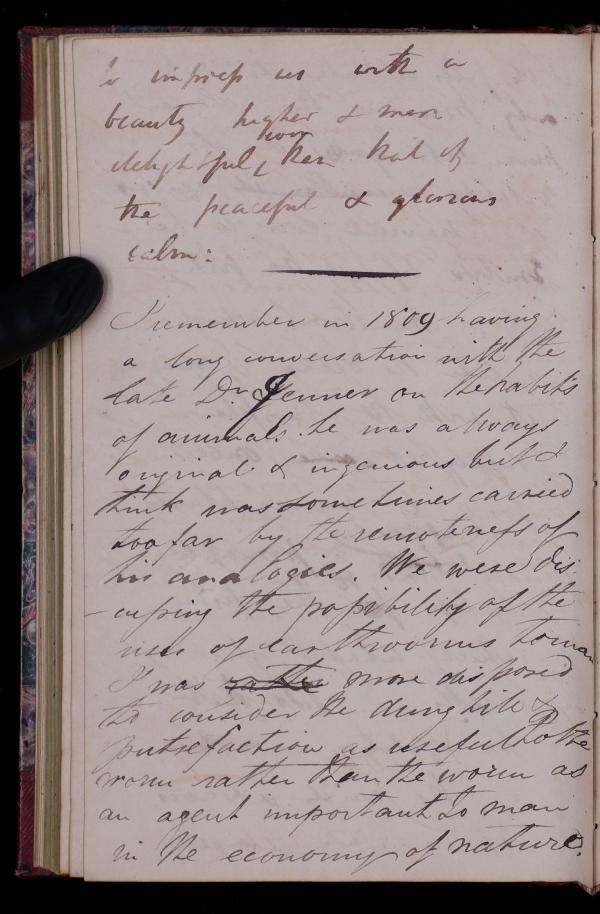 to impress us with a
beauty higher & more
delightful, even than that of
the peaceful & glorious
calm:
I remember in 1809 having
a long conversation with the
late Dr Jenner on the habits
of animals. he was always
original & ingenious but I
think was sometimes carried
too far by the remoteness of
his analogies. We were dis
-cussing the possibility of the
uses of earthworms to man
I was rather more disposed
to consider the dunghile &
putrefaction as useful to the
worm rather than the worm as
an agent important to man
in the economy of nature.